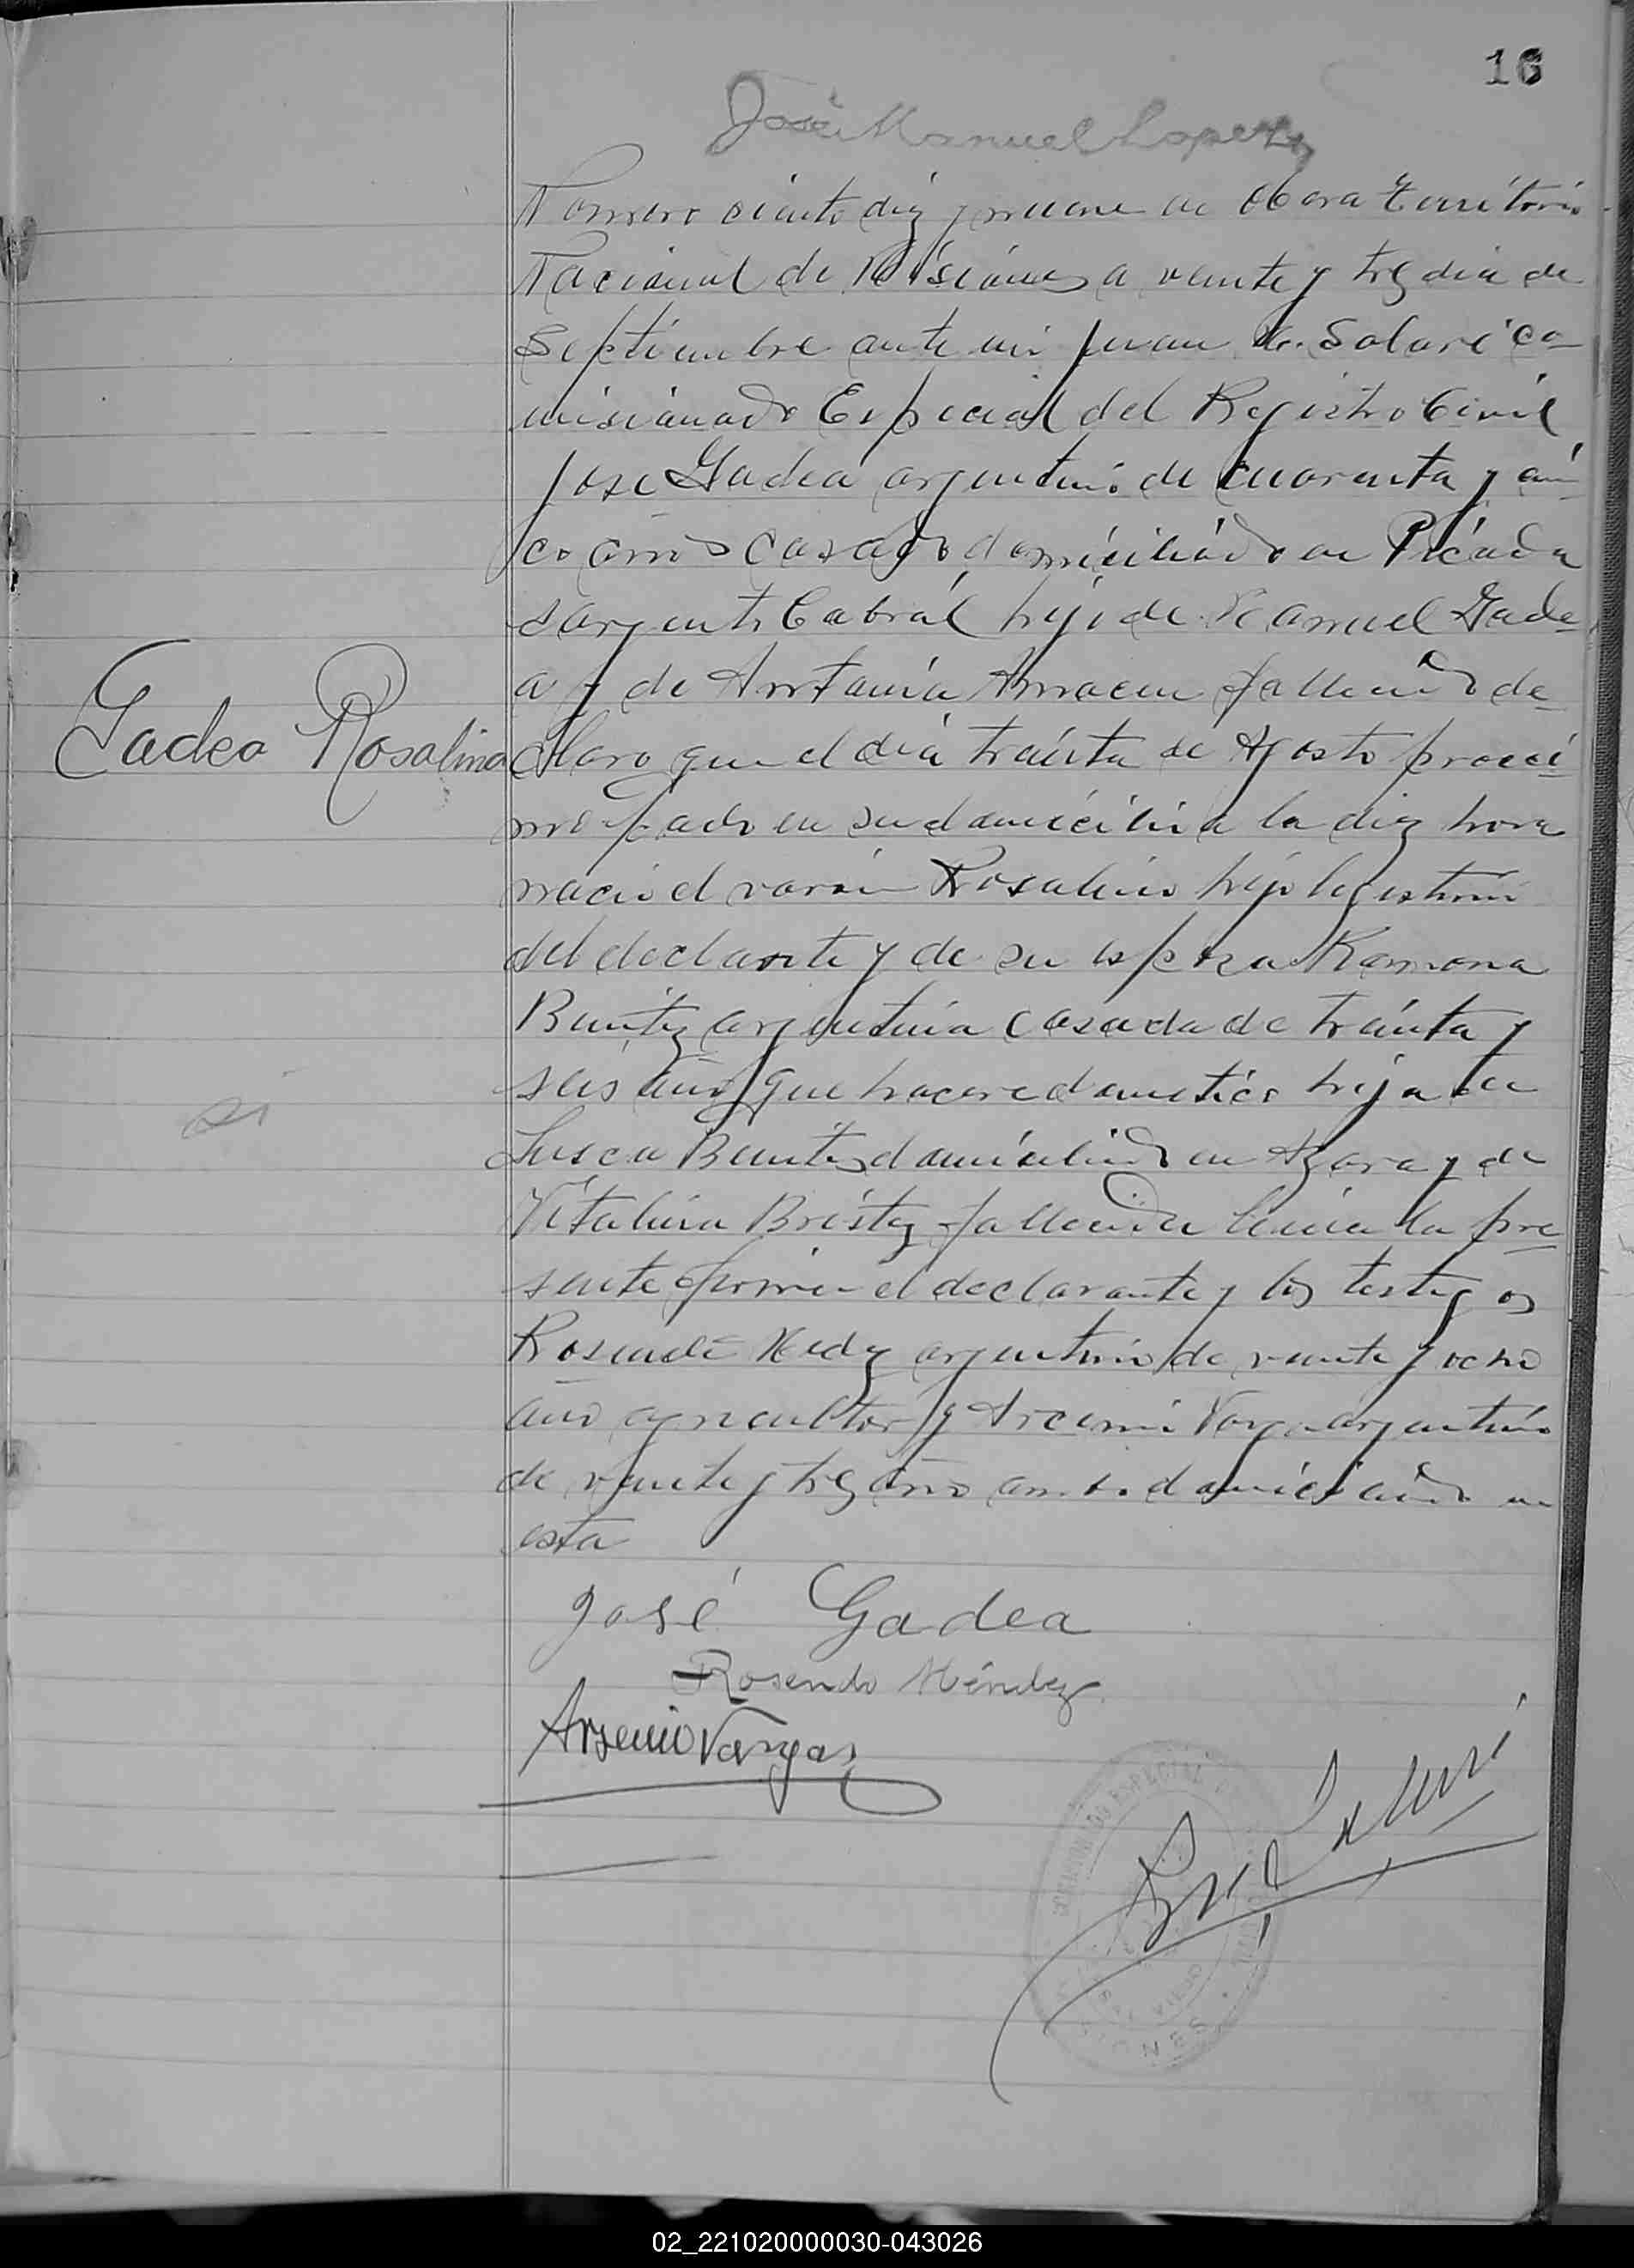 16
José Manuel Lopez
Numero ciento diez y nueve en Obera Territorio
Nacional de Misiones a veinte y tres dia de
Septiembre ante mi Juan Solari co-
misionado Especial del Registro Civil
Jose Gadea argentino de cuarenta y cin-
co años casado domiciliado en Picada
Sargento Cabral hijo de Manuel Gade-
a y de Antonia fallecido de-
claro que el dia trainta de Agosto procci-
mo pado en su domicilio a la diez hora
nacio el varon Rosalino hijo legitimo
del declarante y de su espoza Ramona
Benitez argentina casada de trainta y
seis año que hacere domestico hija de
Benitez domiciliado en Azara y de
Vitalina fallecida leida la pre-
sente firman el declarante y los testigos
Rosendo argentino de veinte y ocho
año agricultor y Arcenio Varga argentino
de veinte y tres año ambo domiciliado en
esta
Gadea Rosalino
si
José Gadea
Rosendo Méndez
Arsenio Vargas
COMISIONADO ESPECIAL
MISIONES
02_221020000030-043026